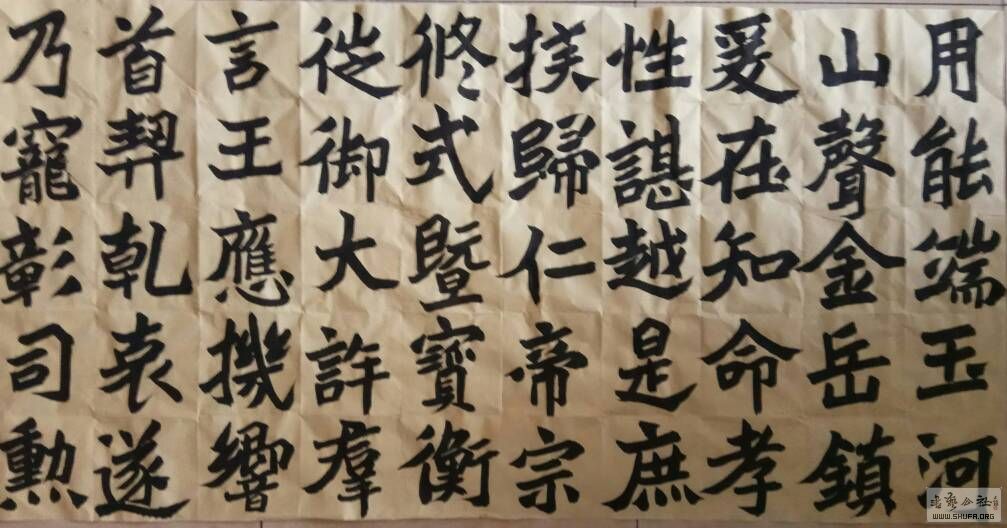 用能端玉河
山聲金岳鎮
爰在知命孝
性諶越是庶
撲歸仁帝宗
修式暨寶衡
從御大許羣
言王應機響
首契乾哀遂
乃寵彰司勳
WWW.SHUFA.ORG